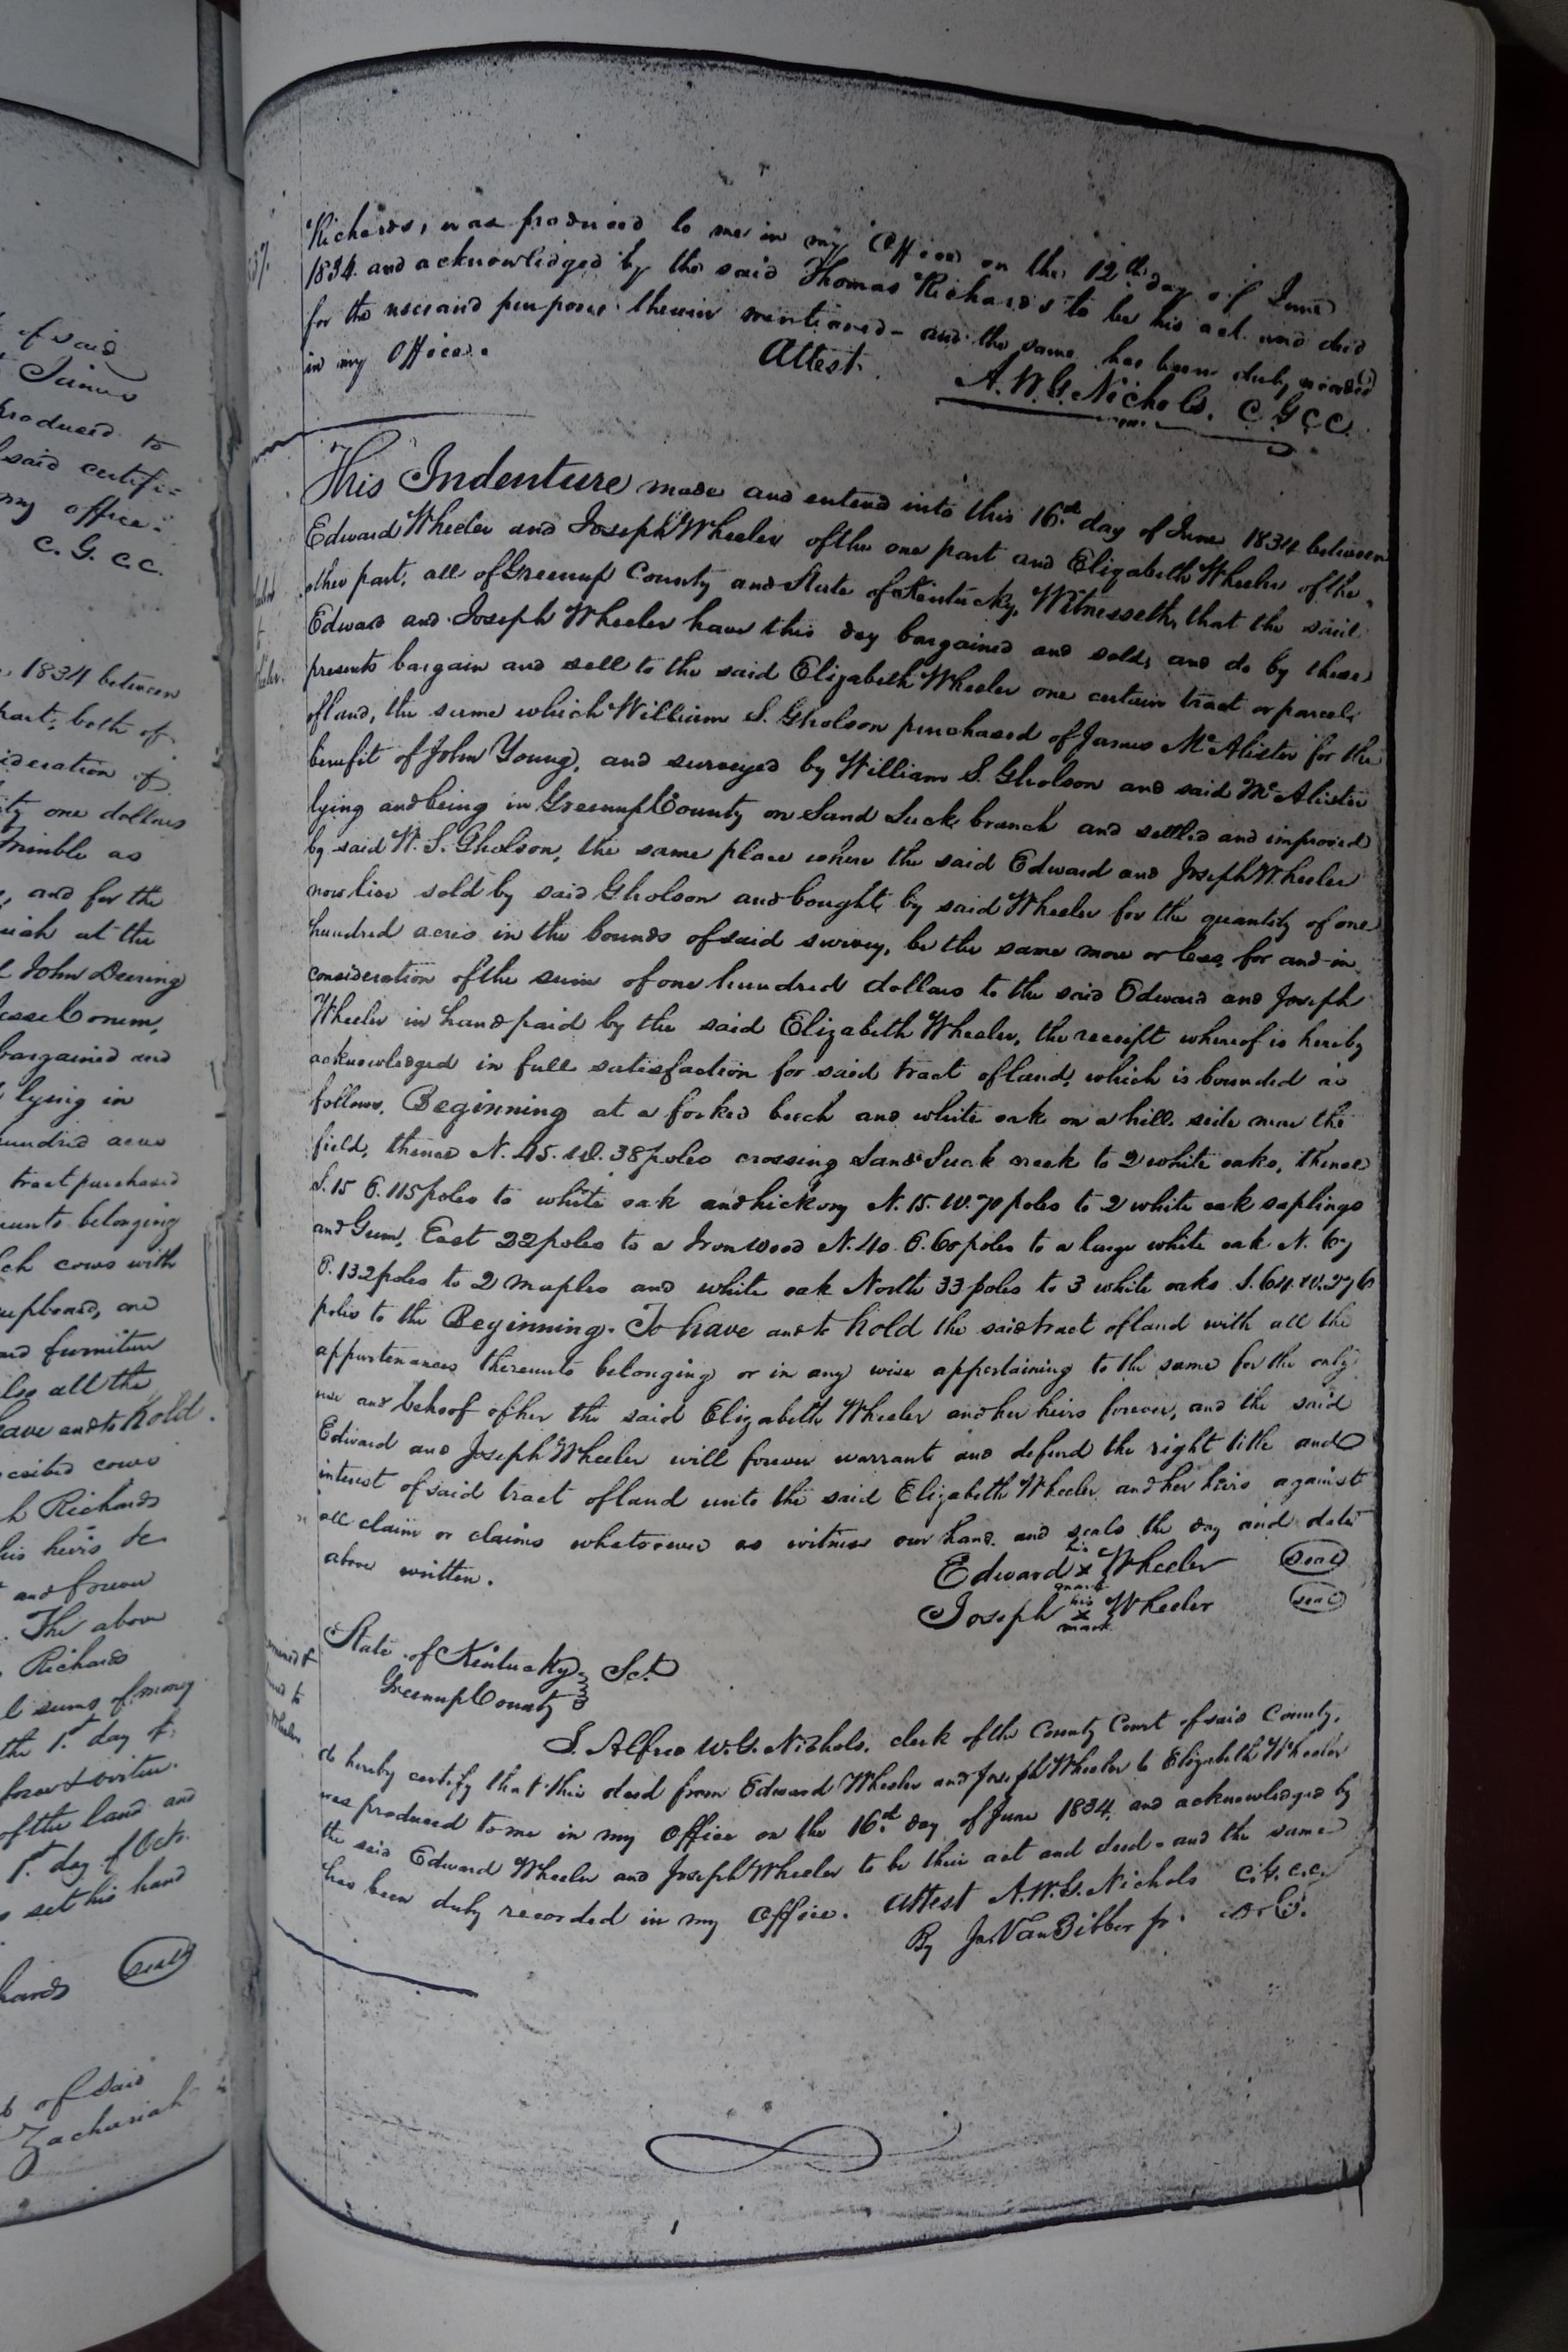 of said
June
produced to
said certifi=
my office:
C. G. C. C.
1834 between
part, both of
ideration of
ty one dollars
Trimble as
, and for the
at the
John Deering
bargained and
lying in
hundred acres
tract purchased
belonging
cows with
cupboard, one
and furniture
also all the
have and to hold
cows
Richards
his heirs &c
and forever
The above
Richards
sums of money
the 1st day of
of the land and
1st day of Octr.
set his hand
seal
of said
Zachariah
Richards, was produced to me in my Office on the 12th day of June
1834. and acknowledged by the said Thomas Richards to be his act and deed
for the uses and purposes therein mentioned - and the same has been duly recorded
in my Office. Attest.
A. W. G. Nichols. C. G. C. C.
This Indenture made and enterd into this 16th day of June 1834 between
Edward Wheeler and Joseph Wheeler of the one part and Elizabeth Wheeler of the
other part, all of Greenup County and State of Kentucky, Witnesseth, that the said
Edward and Joseph Wheeler have this day bargained and sold, and do by these
presents bargain and sell to the said Elizabeth Wheeler one certain tract or parcel
of land, the same which William S. Gholson purchased of James McAlister for the
benefit of John Young, and surveyed by William S. Gholson and said McAlister
lying and being in Greenup County on Sand Suck branch and settled and improved
by said W. S. Gholson, the same place where the said Edward and Joseph Wheeler
now live sold by said Gholson and bought by said Wheeler for the quantity of one
hundred acres in the bounds of said survey, be the same more or less, for and in
consideration of the sum of one hundred dollars to the said Edward and Joseph
Wheeler in hand paid by the said Elizabeth Wheeler, the receipt whereof is hereby
acknowledged in full satisfaction for said tract of land, which is bounded as
follows, Beginning at a forked beech and white oak on a hill side near the
field, thence N. 45. W. 38 poles crossing Sand Suck creek to 2 white oaks, thence
S. 15 E. 115 poles to white oak and hickory N. 15. W. 70 poles to 2 white oak saplings
and Gum, East 22 poles to a Iron Wood N. 40. E. 60 poles to a large white oak N. 67
E. 132 poles to 2 maples and white oak North 33 poles to 3 white oaks S. 64. W. 276
poles to the Beginning. To have and to hold the said tract of land with all the
appurtenances thereunto belonging or in any wise appertaining to the same for the only
use and behoof of her the said Elizabeth Wheeler and her heirs forever, and the said
Edward and Joseph Wheeler will forever warrant and defend the right title and
interest of said tract of land unto the said Elizabeth Wheeler and her heirs against
all claim or claims whatsoever as witness our hand and seals the day and date
above written.
Edward his x mark Wheeler seal
Joseph his x mark Wheeler seal
State of Kentucky Sct.
Greenup County
I. Alfred W. G. Nichols, clerk of the County Court of said County,
do hereby certify that this deed from Edward Wheeler and Joseph Wheeler to Elizabeth Wheeler
was produced to me in my Office on the 16th day of June 1834, and acknowledged by
the said Edward Wheeler and Joseph Wheeler to be their act and deed - and the same
has been duly recorded in my Office. Attest A. W. G. Nichols C. G. C. C.
By Jas. Van Bibber jr. D. C.